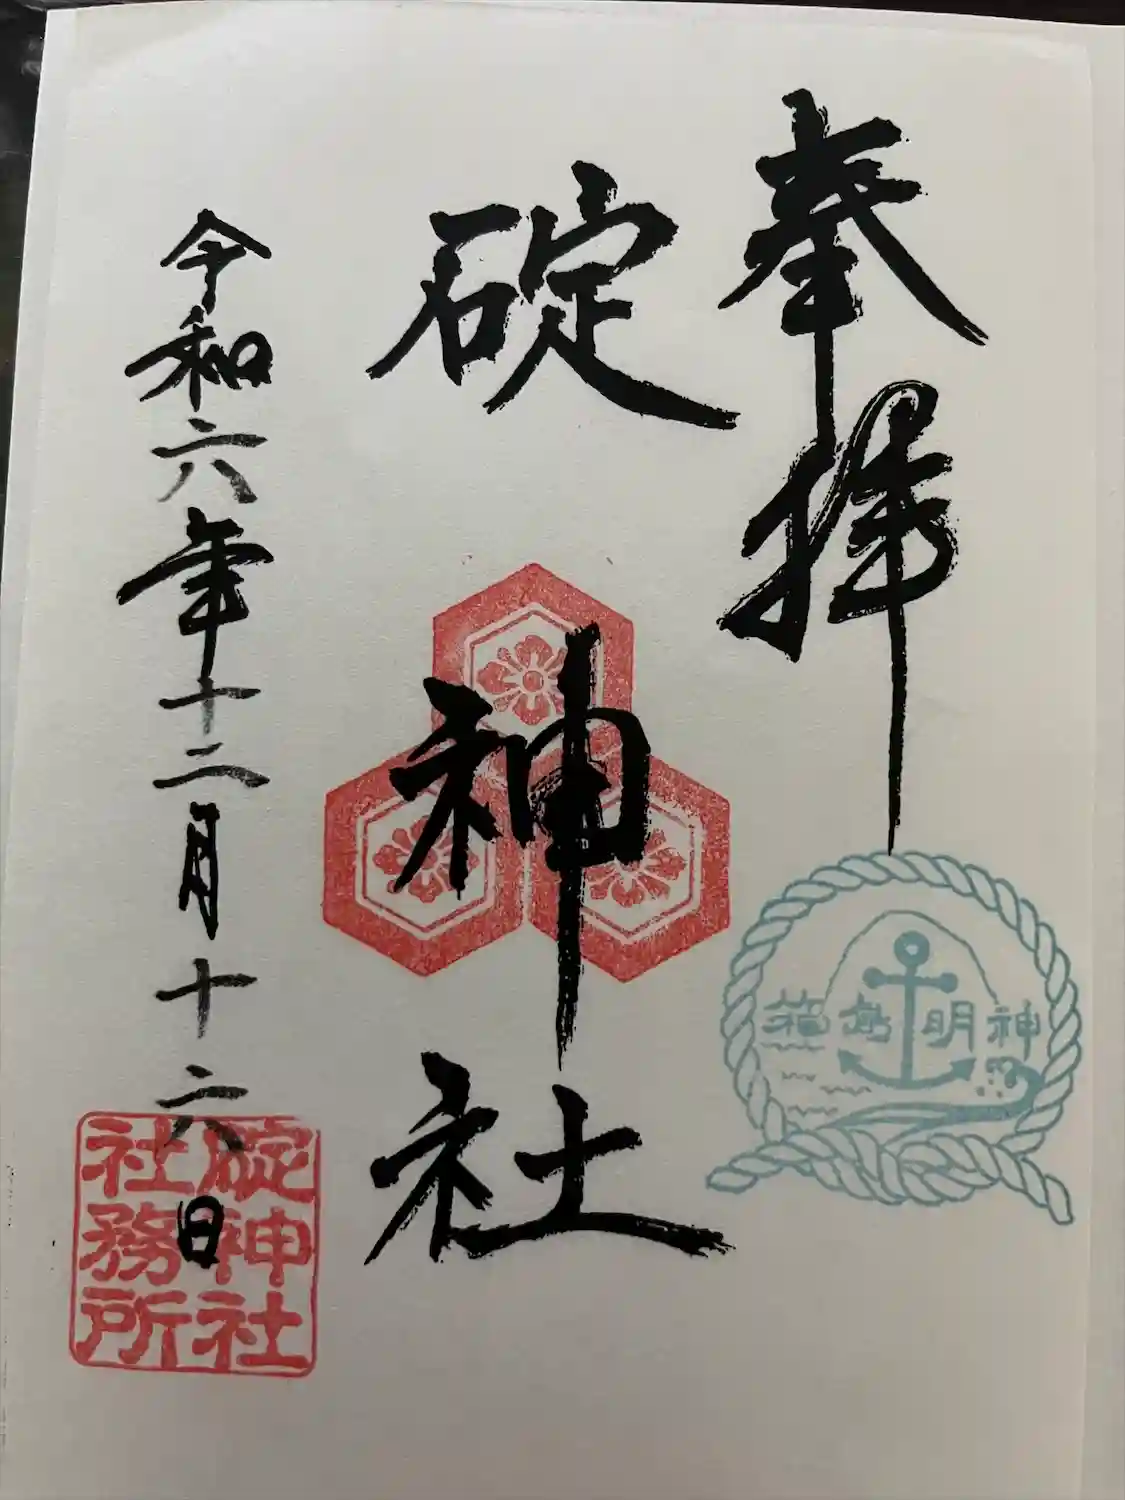 奉拝
箱 明神
碇神社
令和六年十二月十六日
碇神社
社務所